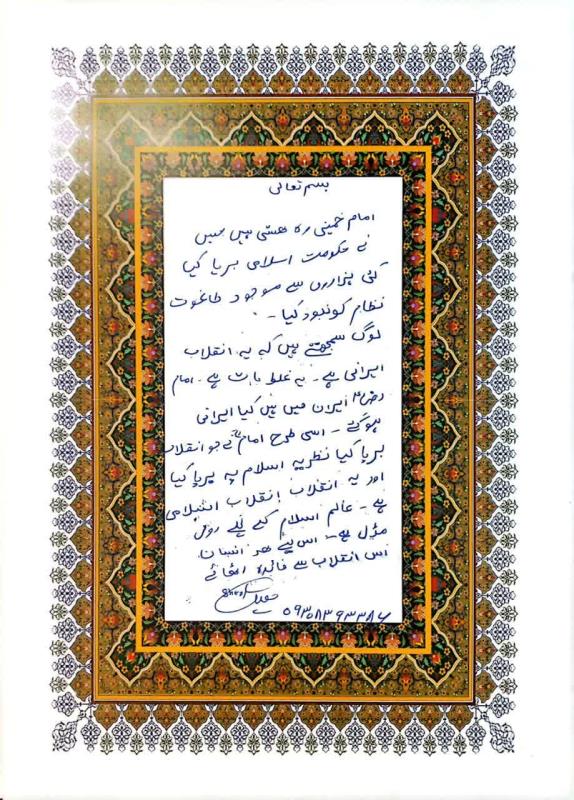 بسم تعالی
امام خمینی رہ ہستی ہیں جس
نے حکومت اسلامی برپا کیا
کئی ہزاروں سے موجود طاغوت
نظام کو نابود کیا -
لوگ سمجھتے ہیں کہ یہ انقلاب
ایرانی ہے - یہ غلط بات ہے - امام
رضاؑ ایران میں ہیں کیا ایرانی
ہوگئے - اسی طرح امام نے جو انقلاب
برپا کیا نظریہ اسلام پہ برپا کیا
اور یہ انقلاب انقلاب اسلامی
ہے - عالم اسلام کے لئے رول
مڈل ہے - اس لیے ہر انسان
اس انقلاب سے فائدہ اٹھائے